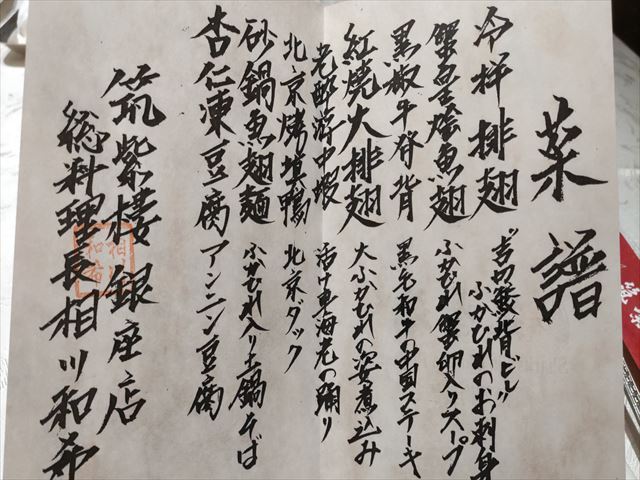 菜譜
冷拌排翅 "吉切鮫背ビレ"
ふかひれのお刺身
蟹皇燴魚翅 ふかひれ蟹卵入りスープ
黒椒牛脊背 黒毛和牛の中国ステーキ
紅燒大排翅 大ふかひれの姿煮込み
老酔 中蝦 活け車海老の踊り
北京烤填鴨 北京ダック
砂鍋魚翅麺 ふかひれ入り土鍋そば
杏仁凍豆腐 アンニン豆腐
筑紫樓 銀座店
総料理長 相川和希